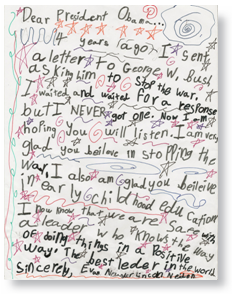 Dear President Obama...
4 years ago, I sent
a letter to George W. Bush
asking him to stop the war.
I waited and waited for a response
but I NEVER got one. Now I am
hoping you will listen. I am very
glad you beilive in stopping the
way, I also am glad you beileive
in early childhood education
I now know that we are safe with
a leader who knows the way
of doing things in a positive
way. The best leder in the world
Sincerely,